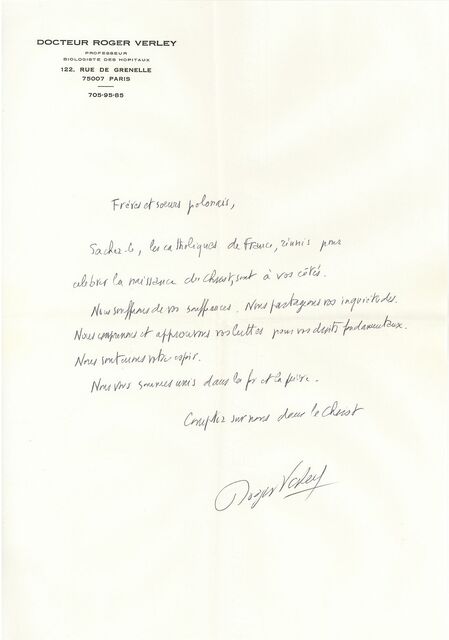 DOCTEUR ROGER VERLEY
PROFESSEUR
BIOLOGISTE DES HOPITAUX
122, RUE DE GRENELLE
75007 PARIS
705-95-85
Frères et sœurs polonais,
Sachez-le, les catholiques de France, réunis pour
célébrer la naissance du Christ, sont à vos côtés.
Nous souffrons de vos souffrances. Nous partageons vos inquiétudes.
Nous comprenons et approuvons vos luttes pour vos droits fondamentaux.
Nous soutenons votre espoir.
Nous vous sommes unis dans la foi et la prière.
Comptez sur nous dans le Christ
Roger Verley